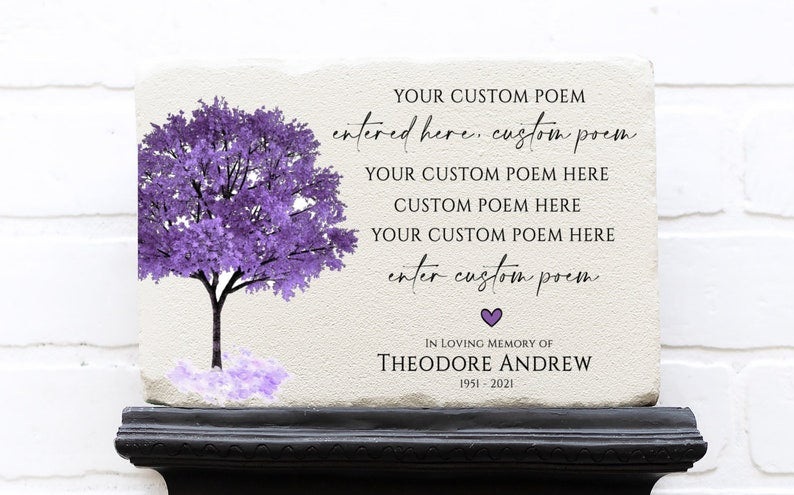 YOUR CUSTOM POEM
entered here, custom poem
YOUR CUSTOM POEM HERE
CUSTOM POEM HERE
YOUR CUSTOM POEM HERE
enter custom poem
IN LOVING MEMORY OF
THEODORE ANDREW
1951 - 2021